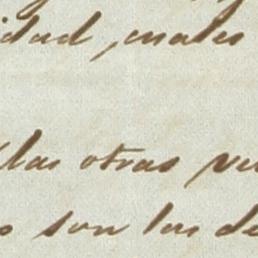 idad, cuales
las otras ve
s son las de